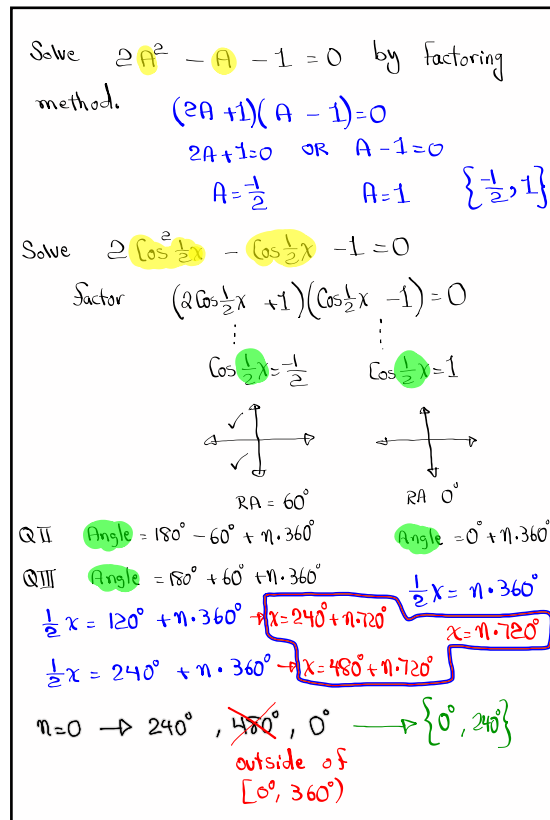 Solve 2A² - A - 1 = 0 by factoring
method. (2A + 1)(A - 1) = 0
2A + 1 = 0 OR A - 1 = 0
A = -1/2 A = 1 {-1/2, 1}
Solve 2 Cos² 1/2 x - Cos 1/2 x - 1 = 0
factor (2 Cos 1/2 x + 1)(Cos 1/2 x - 1) = 0
Cos 1/2 x = -1/2 Cos 1/2 x = 1
RA = 60° RA 0°
QII Angle = 180° - 60° + n·360° Angle = 0° + n·360°
QIII Angle = 180° + 60° + n·360°
1/2 x = n·360°
1/2 x = 120° + n·360° → x = 240° + n·720° x = n·720°
1/2 x = 240° + n·360° → x = 480° + n·720°
n=0 → 240°, 480°, 0° → {0°, 240°}
outside of
[0°, 360°)